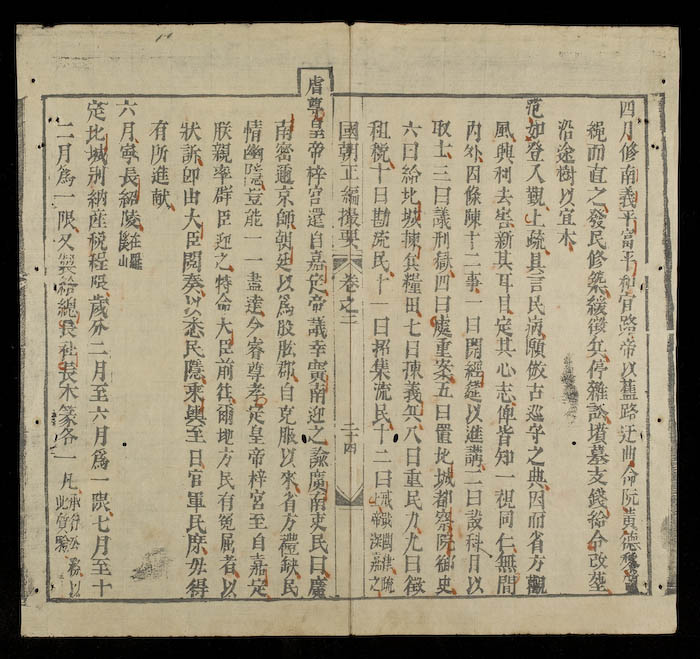 四月修南義平富平和官路帝以舊路迂曲命阮黃德
繩而直之發民修築緩徵兵停雜訟墳墓支錢給令改塟
沿途樹以宜木
范如登入覲上疏具言民病願倣古巡守之典因而省方觀
風興利去害新其耳目定其心志俾皆知一視同仁無間
內外因條陳十二事一曰開經筵以進講二曰設科目以
取士三曰議刑獄四曰處重案五曰置北城都察院御史
六曰給北城揀兵糧田七曰揀義兵八曰重民力九曰徵
租稅十曰勘流民十一曰招集流民十二曰
疏上帝深嘉之
國朝正編撮要 卷之三 二十四
虐尊皇帝梓宮還自嘉定帝議幸廣南迎之諭廣南吏民曰廣
南密邇京師朝廷以爲股肱郡自克服以來省方禮缺民
情幽隱豈能一一盡達今睿尊孝定皇帝梓宮至自嘉定
朕親率群臣迎之特命大臣前往爾地方民有冤屈者以
狀訴卽由大臣閱奏以悉民隱乘輿至日官軍民庶毋得
有所進獻
六月寧長紹陵在羅溪山
定北城別納座稅程限歲分二月至六月爲一限七月至十
二月爲一限又製給總長社長木篆各一凡承行公務以此質驗